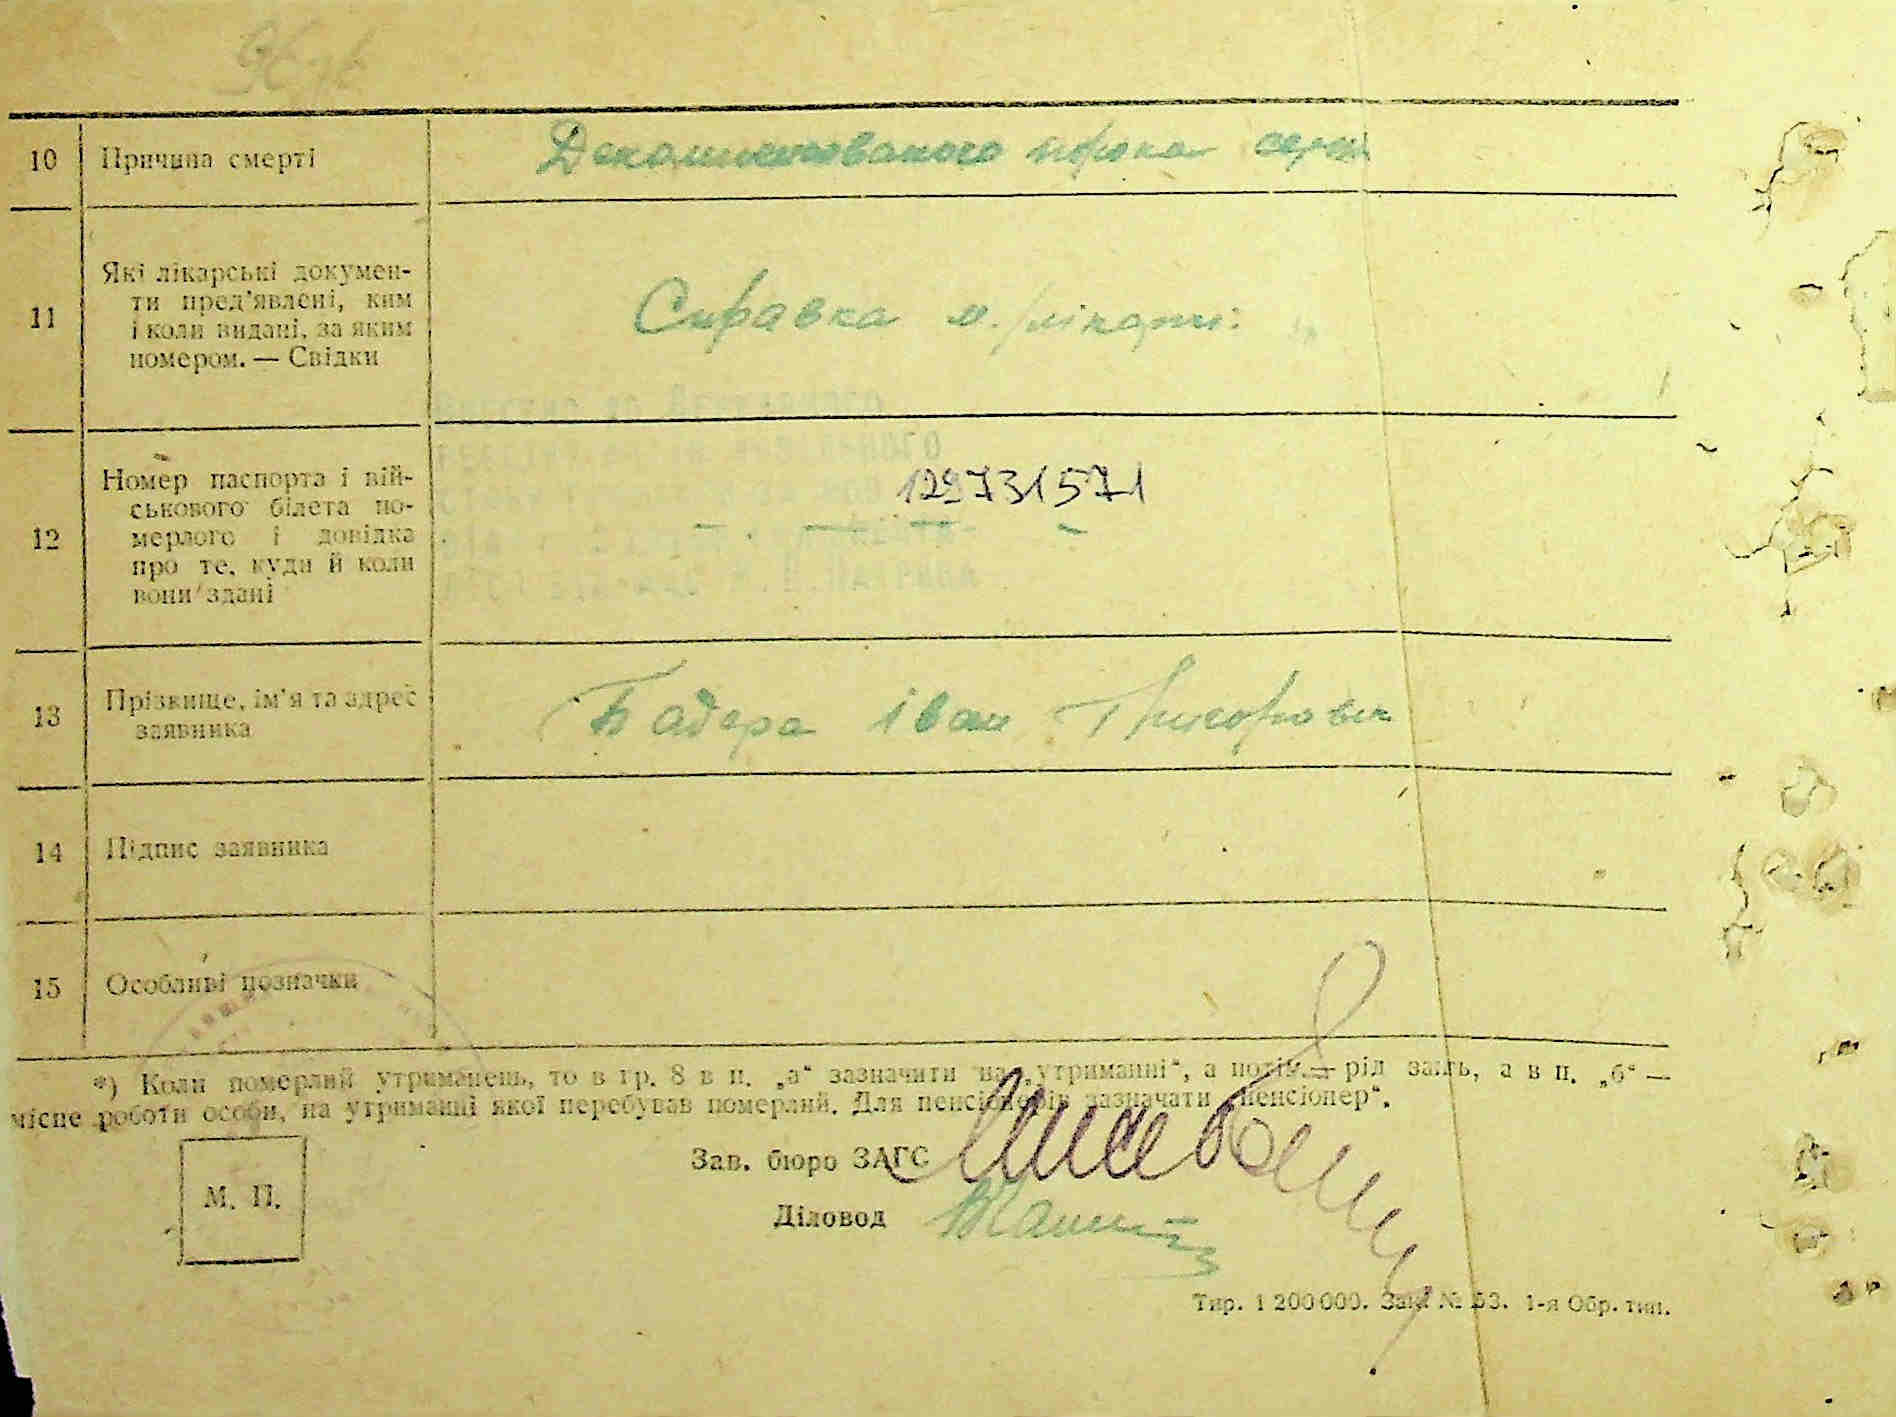 10 Причина смерті Декомпенсованого порока серця
11 Які лікарські докумен-
ти пред'явлені, ким
і коли видані, за яким
номером. — Свідки
Справка
12 Номер паспорта і вій-
ськового білета по-
мерлого і довідка
про те, куди й коли
вони здані
129731571
13 Прізвище, ім'я та адрес
заявника
Бадера Іван Григорович
14 Підпис заявника
15 Особливі позначки
*) Коли померлий утриманець, то в гр. 8 в п. „а“ зазначити „на утриманні“, а потім — рід занять, а в п. „б“ —
місце роботи особи, на утриманні якої перебував померлий. Для пенсіонерів зазначати „пенсіонер“.
Зав. бюро ЗАГС
М. П.
Діловод
Тир. 1 200 000. Зак. № 53. 1-я Обр. тип.